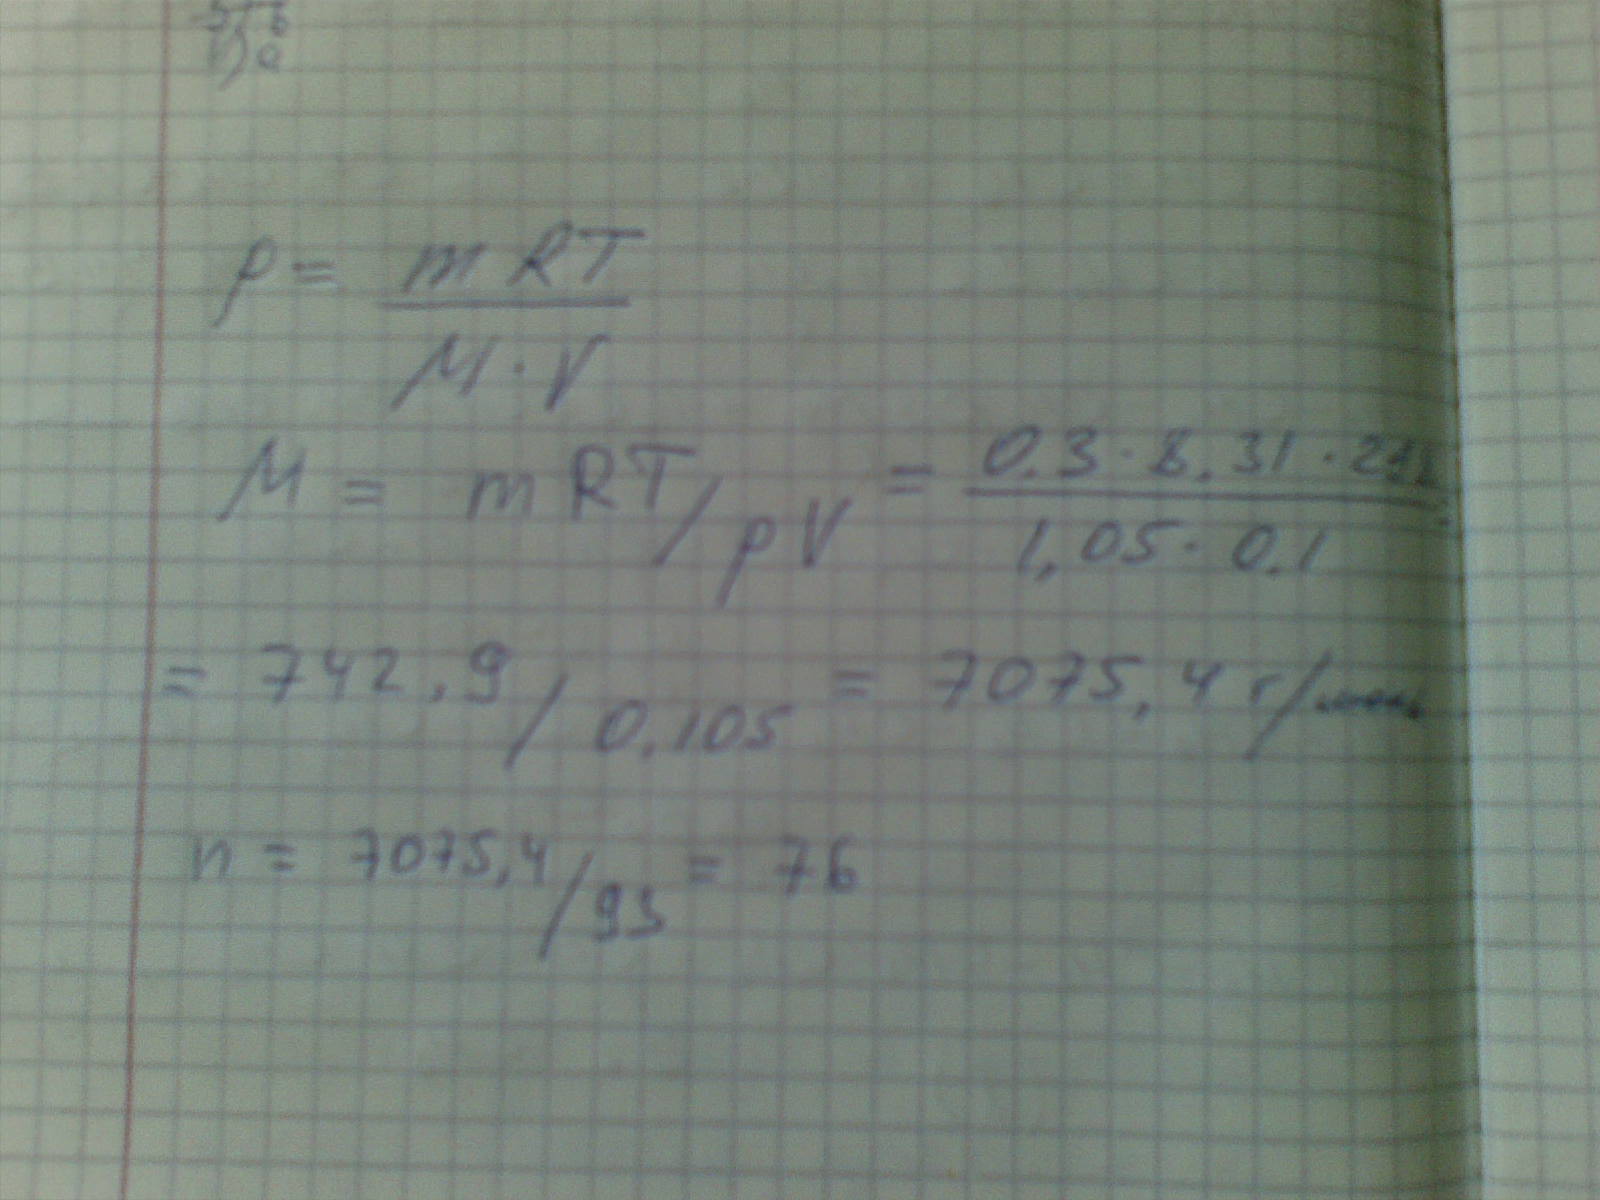 p = mRT
M · V
M = mRT/pV = 0.3 · 8.31 · 298
1,05 · 0.1
= 742,9/0.105 = 7075,4 г/моль
n = 7075,4/93 = 76